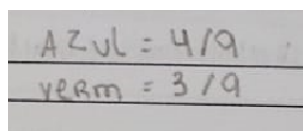 AZul = 4/9
veRm = 3/9